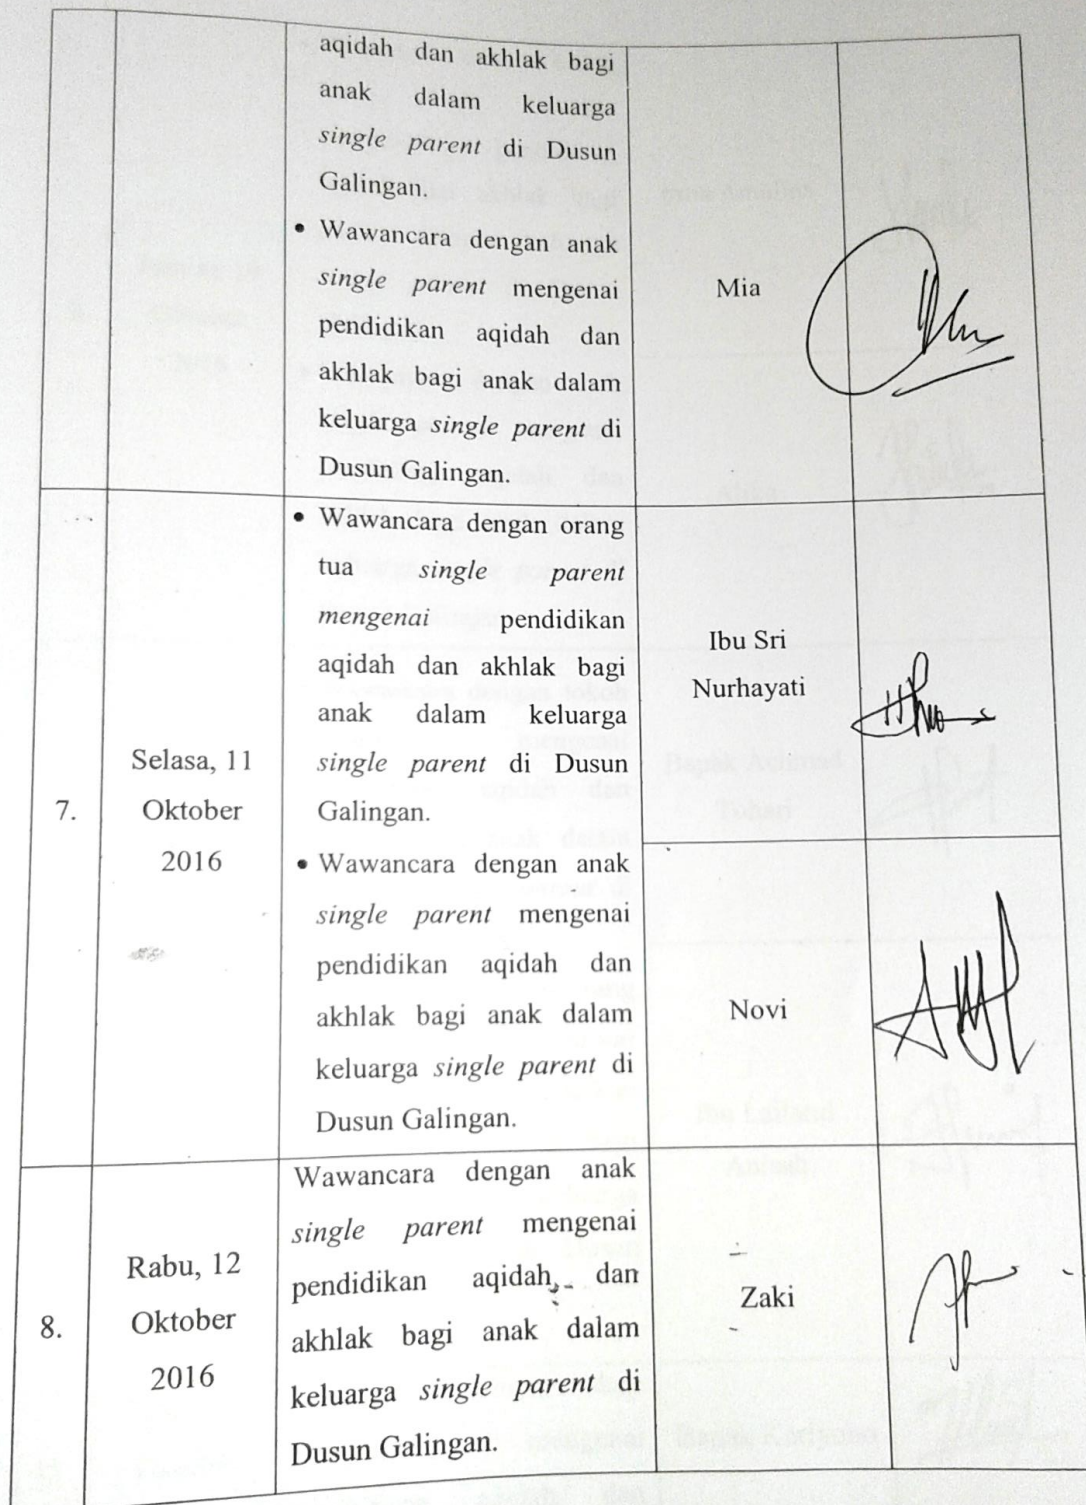 aqidah dan akhlak bagi
anak dalam keluarga
single parent di Dusun
Galingan.
• Wawancara dengan anak
single parent mengenai
pendidikan aqidah dan
akhlak bagi anak dalam
keluarga single parent di
Dusun Galingan.
Mia
7.
Selasa, 11
Oktober
2016
• Wawancara dengan orang
tua single parent
mengenai pendidikan
aqidah dan akhlak bagi
anak dalam keluarga
single parent di Dusun
Galingan.
• Wawancara dengan anak
single parent mengenai
pendidikan aqidah dan
akhlak bagi anak dalam
keluarga single parent di
Dusun Galingan.
Ibu Sri
Nurhayati
Novi
8.
Rabu, 12
Oktober
2016
Wawancara dengan anak
single parent mengenai
pendidikan aqidah dan
akhlak bagi anak dalam
keluarga single parent di
Dusun Galingan.
Zaki